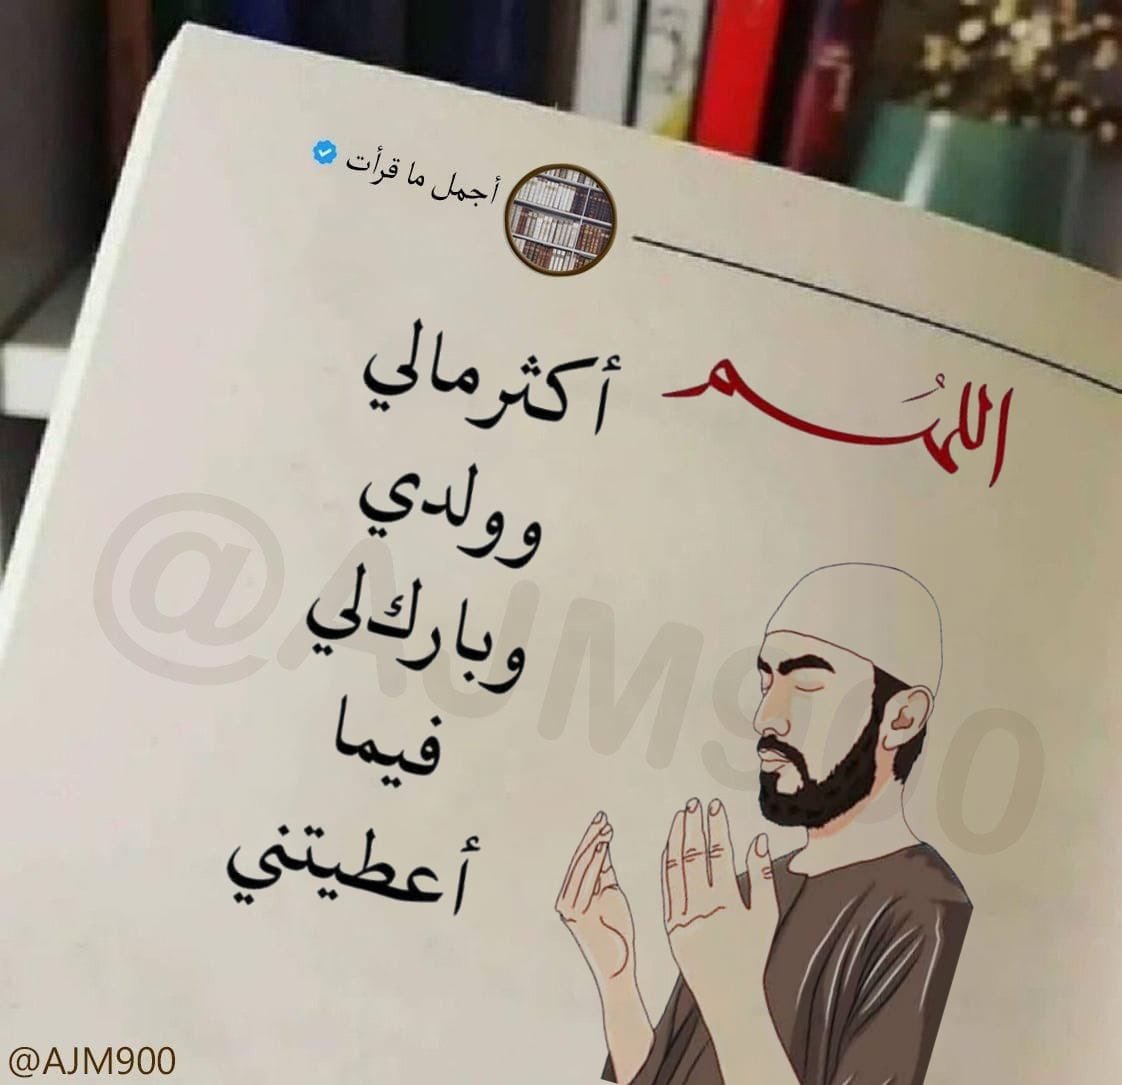 أجمل ما قرأت
اللهُم أكثر مالي
وولدي
وبارك لي
فيما
أعطيتني
@AJM900
@AJM900